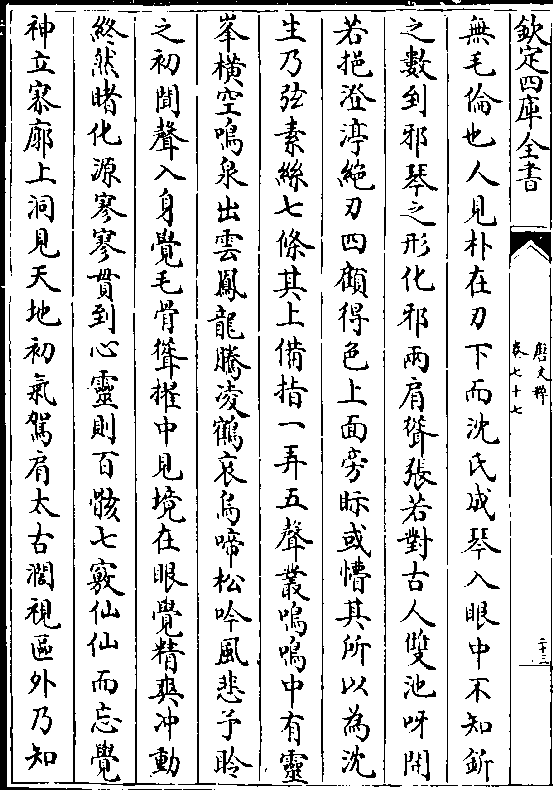 欽定四庫全書
唐文粹
卷七十七
二十三
無毛倫也人見朴在刃下而沈氏成琴入眼中不知斲
之數到邪琴之形化邪兩肩聳張若對古人雙池呀開
若挹澄渟絶刃四顧得色上面旁眎或慒其所以為沈
生乃弦素絲七條其上備指一弄五聲叢鳴鳴中有靈
峯横空鳴泉出雲鳳龍騰凌鶴哀烏啼松吟風悲予聆
之初聞聲入身覺毛骨聳擢中見境在眼覺精爽冲動
終然睹化源寥寥貫到心靈則百骸七竅仙仙而忘覺
神立寥廓上洞見天地初氣駕肩太古濶視區外乃知